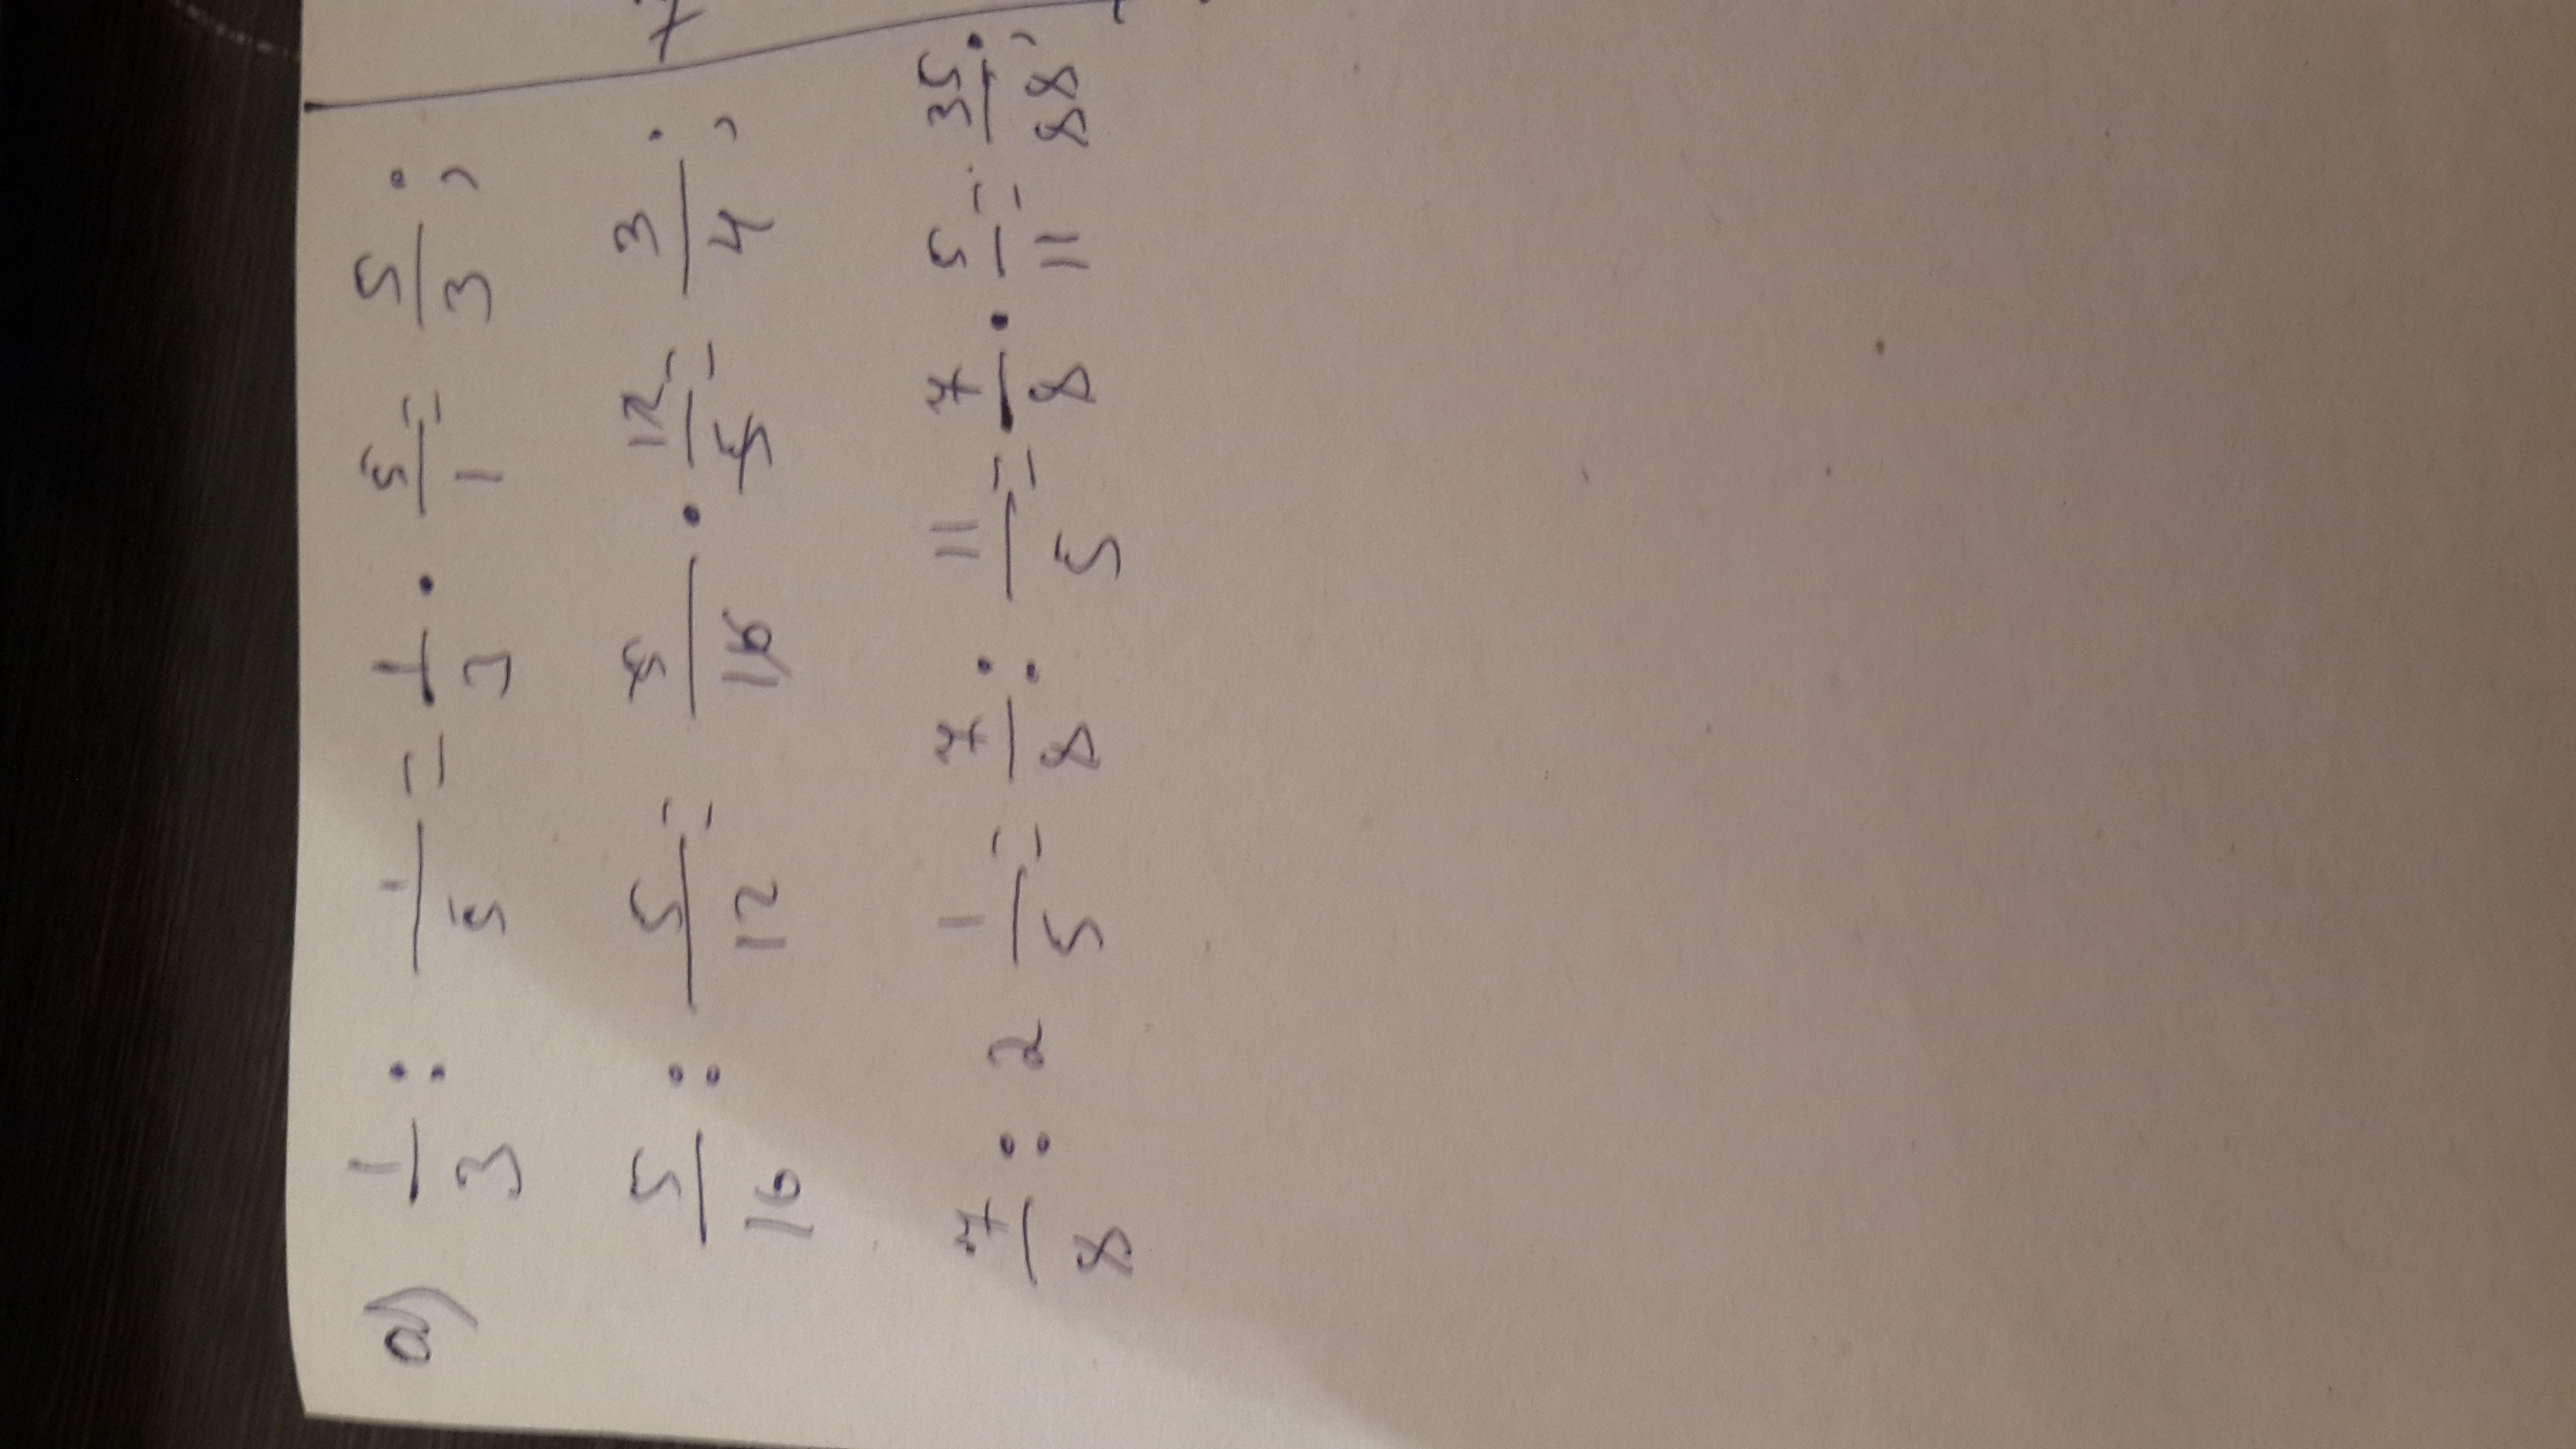 a) 1/3 : 1/5 = 1/3 · 5/1 = 5/3 ;
5/16 : 5/12 = 5/16 · 12/5 = 3/4 ;
7/8 : 2 1/5 = 7/8 : 11/5 = 7/8 · 5/11 = 35/88 ;